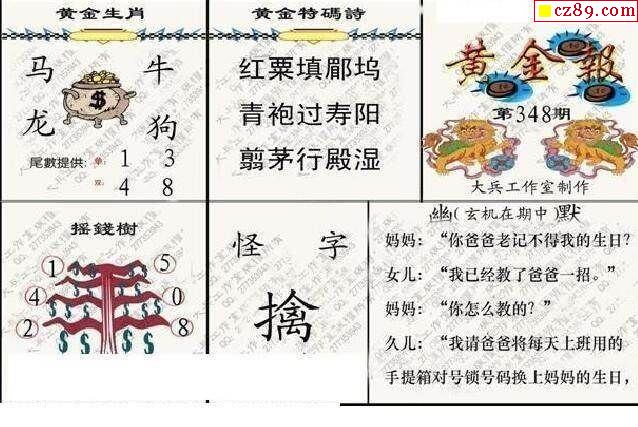 cz89.com
黄金生肖
马 牛
龙 狗
尾數提供: 单: 1 3
双: 4 8
黄金特碼詩
红粟填郿坞
青袍过寿阳
翦茅行殿湿
黄金報
第348期
大兵工作室制作
摇錢樹
1 5
4 0
2 8
怪 字
擒
幽(玄机在期中)默
妈妈:“你爸爸老记不得我的生日?
女儿:“我已经教了爸爸一招。”
妈妈:“你怎么教的?”
久儿:“我请爸爸将每天上班用的
手提箱对号锁号码换上妈妈的生日,